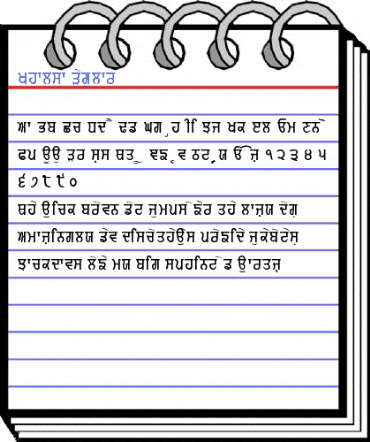 ਖਹਾਲਸਾ ੜੇਗੁਲਾਰ
ਆ ਭਬ ਛਚ ਧਦੈ ਢਡ ਘਗ ੁਹ ੀਿ ਝਜ ਖਕ ੲਲ ਓਮ ਣਨੋ
ਫਪ ਊਉ ੜਰ ਸ਼ਸ ਥਤ ੂ ਵਙ ੍ਵ ਠਟ ੍ਰਯ ੴਜ਼ ੧੨੩੪੫
੬੭੮੯੦
ਥਹੇ ਉਚਿਕ ਬਰੋਵਨ ਡੋਟ ਜੁਮਪਸ ੋਙੇਰ ਤਹੇ ਲਾਜ਼ਯ ਦੋਗ਼
ਅਮਾਜ਼ਨਿਗਲਯ ਡੇਵ ਦਸਿਚੋਤਹੋਉਂਸ ਪਰੋਙਦਿੇ ਜੁਕੇਬੋਟੇਸ਼
ਝਾਚਕਦਾਵਸ ਲੋਙੇ ਮਯ ਬਗਿ ਸਪਹਨਿਟ ੋਡ ਉਾਰਤਜ਼